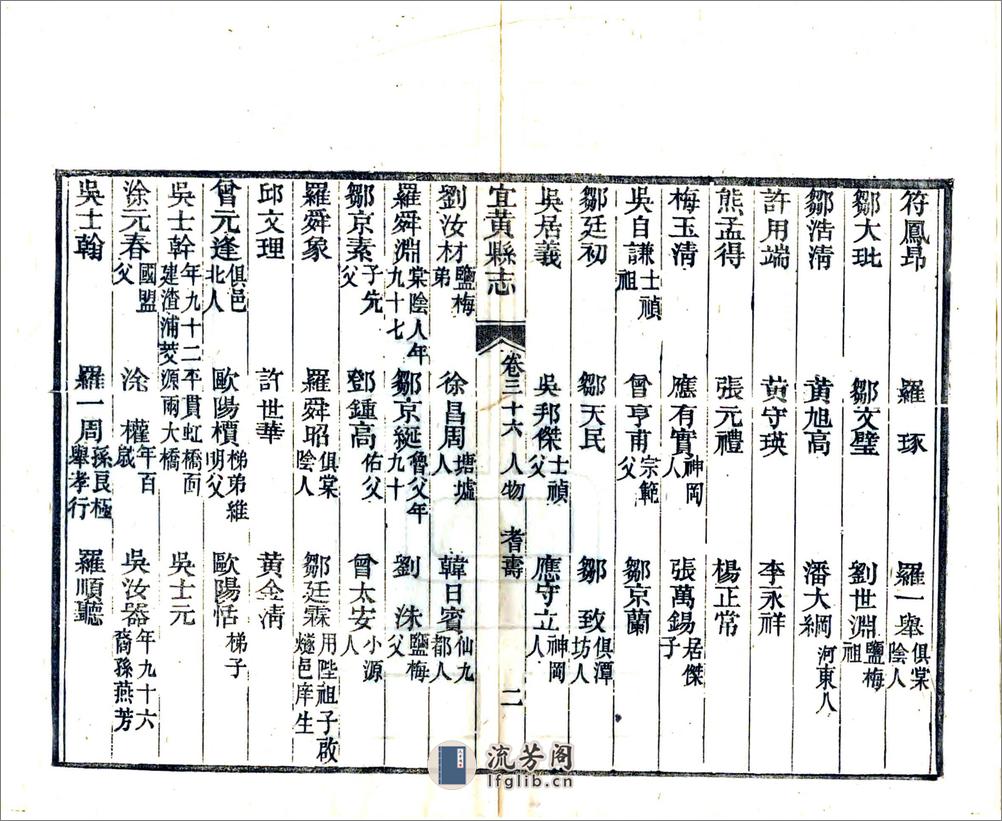 符鳳昂 羅琢 羅一舉俱棠陰人
鄒大玭 鄒文璧 劉世淵鹽梅祖
鄒浩淸 黃旭高 潘大綱河東人
許用端 黃守瑛 李永祥
熊孟得 張元禮 楊正常
梅玉淸 應有實神岡人 張萬錫居傑子
吳自謙士禎祖 曾亨甫宗範父 鄒京蘭
鄒廷初 鄒天民 鄒致俱潭坊人
吳居義 吳邦傑士禎父 應守立神岡人
宜黃縣志 卷三十六 人物 耆壽 二
劉汝材鹽梅弟 徐昌周塘墟人 韓日賓仙九都人
羅舜淵棠陰人年九十七 鄒京綖魯父年九十 劉洙鹽梅父
鄒京素子先父 鄧鍾高佑父 曾太安小源人
羅舜象 羅舜昭俱棠陰人 鄒廷霖用陛祖子啟燧邑庠生
邱文理 許世華 黃金淸
曾元逢俱邑北人 歐陽櫝梯弟維明父 歐陽恬梯子
吳士幹年九十二平貫虹橋面建渣浦菱源兩大橋 吳士元
涂元春國盟父 涂權年百歲 吳汝器年九十六裔孫燕芳
吳士翰 羅一周孫良極舉孝行 羅順聽
流芳阁
lfglib.cn